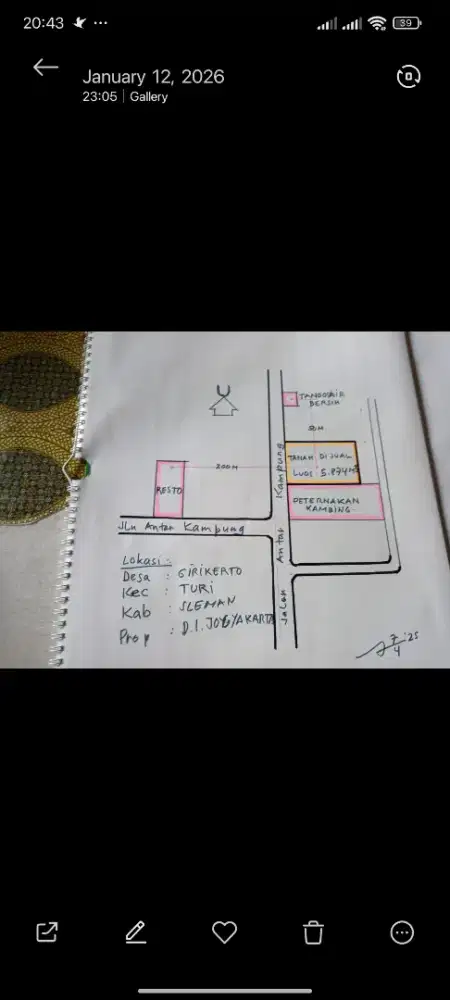 20:43
39
January 12, 2026
23:05 | Gallery
U
TANDON AIR
BERSIH
50M
200M
TANAH DIJUAL
LUAS 5.874M²
RESTO
PETERNAKAN
KAMBING
Jln Antar Kampung
Jalan Antar Kampung
Lokasi :
Desa : GIRIKERTO
Kec : TURI
Kab : SLEMAN
Prop : D.I. JOGYAKARTA
7/4 '25